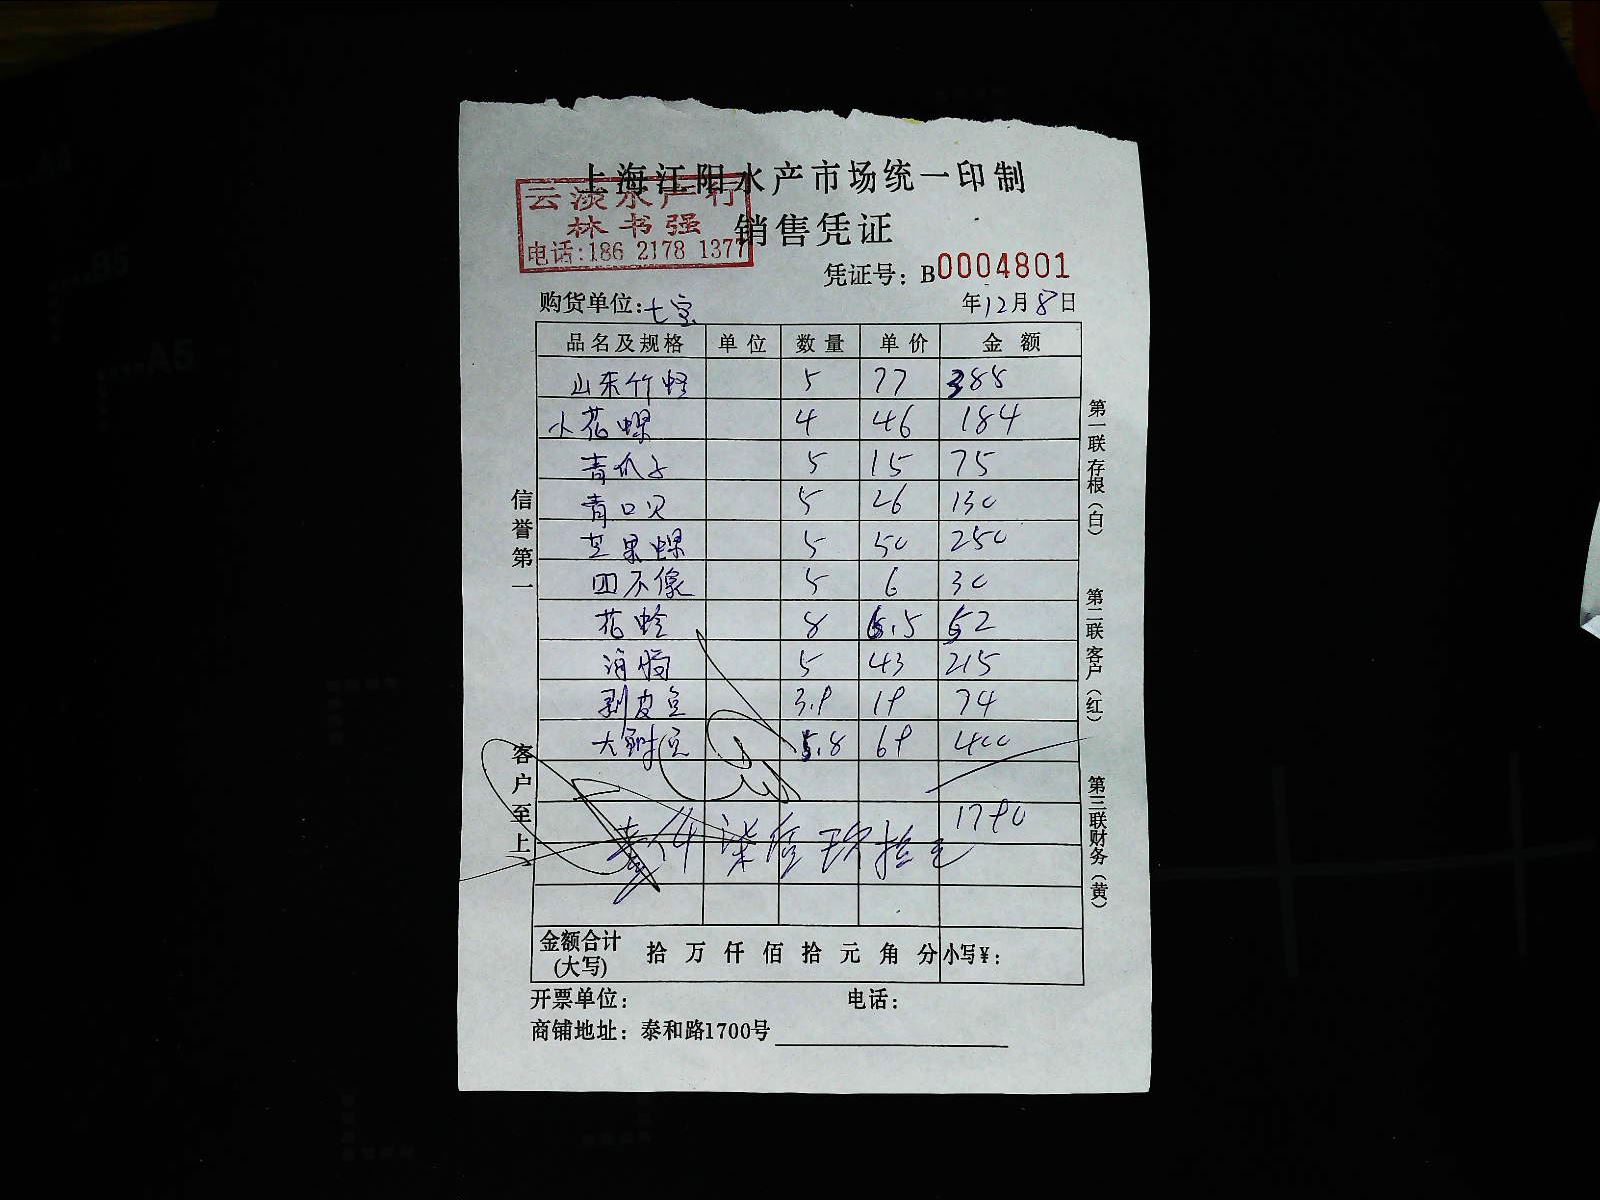 上海江阳水产市场统一印制
云淡水产行
林书强
电话:186 2178 1377
销售凭证
凭证号：B0004801
购货单位:七宝 年12月8日
品名及规格 单位 数量 单价 金额
山东竹蛏 5 77 385
小花螺 4 46 184
青爪子 5 15 75
青口贝 5 26 130
芒果螺 5 50 250
四不像 5 6 30
花蛤 8 6.5 52
5 43 215
剥皮鱼 3.9 19 74
大 5.8 69 400
1790
壹仟柒佰玖拾元
金额合计(大写) 拾 万 仟 佰 拾 元 角 分 小写¥：
开票单位： 电话：
商铺地址：泰和路1700号
信誉第一
客户至上
第一联存根（白）
第二联客户（红）
第三联财务（黄）